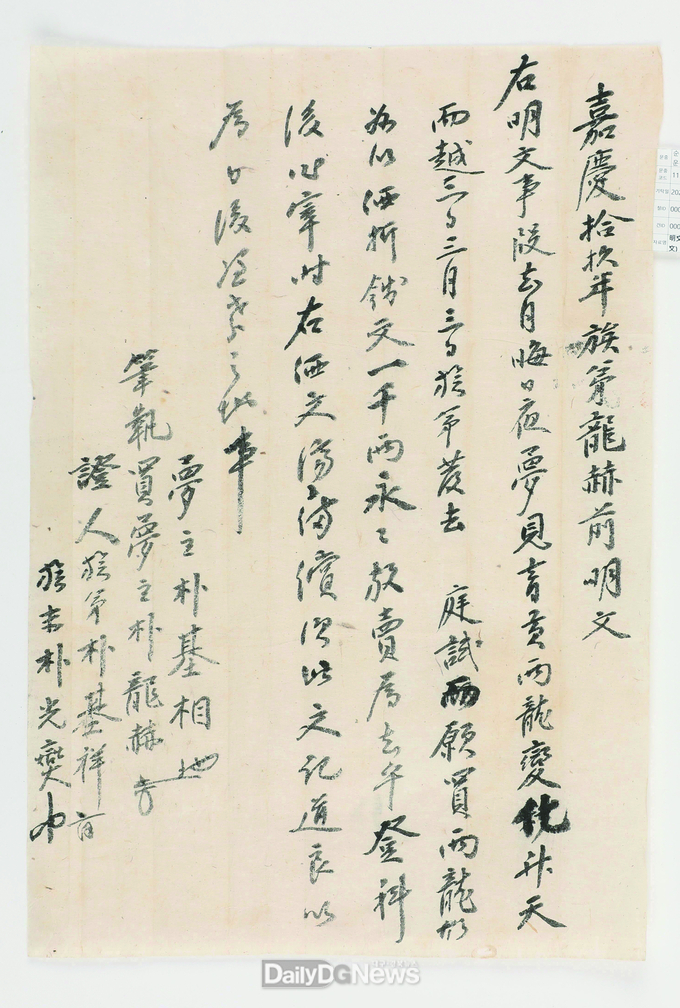 嘉慶拾玖年族弟龍赫前明文
右明文事段去月晦日夜夢見靑黃両龍變化升天
而越三日三月三日族弟發去 庭試而願買両龍
以価折錢文一千両永〻放賣爲去乎登科
後 時右価文 償 此文記導良以
爲日後憑考之地事
夢主朴基相
筆執買夢主朴龍赫
證人族弟朴基祥
族末朴光燮
DailyDGNews